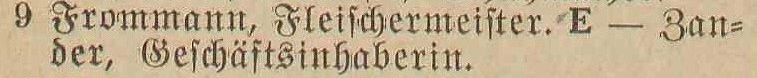 9 Frommann, Fleischermeister. E — Zan-
der, Geschäftsinhaberin.